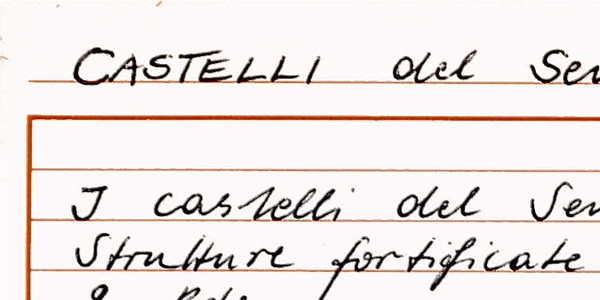 CASTELLI del Sen
I castelli del Sen
Strutture fortificate